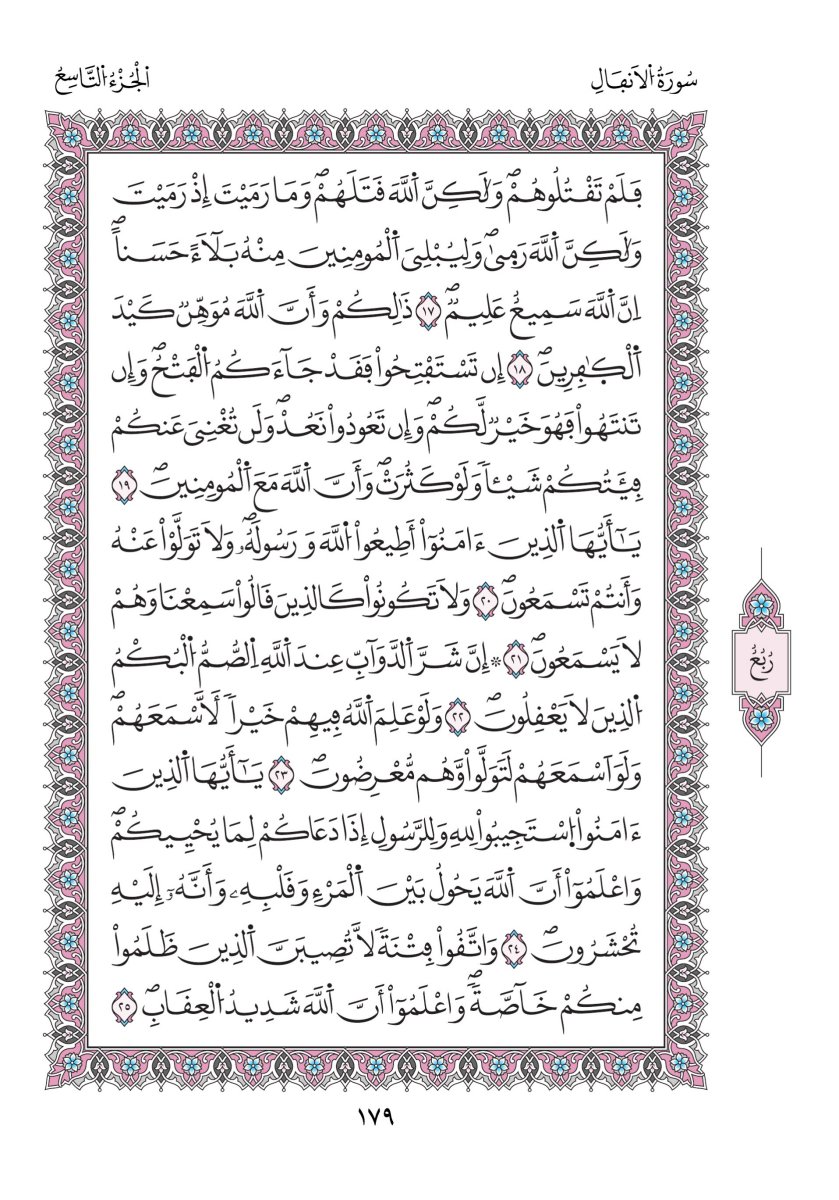 سُورَةُ اُ۬لَانفَالِ
اَ۬لْجُزْءُ اُ۬لتَّاسِعُ
فَلَمْ تَقْتُلُوهُمْۖ وَلَٰكِنَّ اَ۬للَّهَ قَتَلَهُمْۖ وَمَا رَمَيْتَ إِذْ رَمَيْتَ
وَلَٰكِنَّ اَ۬للَّهَ رَم۪يٰۖ وَلِيُبْلِيَ اَ۬لْمُومِنِينَ مِنْهُ بَلَآءً حَسَناًۖ
اِنَّ اَ۬للَّهَ سَمِيعٌ عَلِيمٌۖ ١٧ ذَٰلِكُمْ وَأَنَّ اَ۬للَّهَ مُوَهِّنٌ كَيْدَ
اَ۬لْكٰ۪فِرِينَۖ ١٨ إِن تَسْتَفْتِحُواْ فَقَدْ جَآءَكُمُ اُ۬لْفَتْحُۖ وَإِن
تَنتَهُواْ فَهُوَ خَيْرٌ لَّكُمْۖ وَإِن تَعُودُواْ نَعُدْۖ وَلَن تُغْنِيَ عَنكُمْ
فِئَتُكُمْ شَيْـٔاً وَلَوْ كَثُرَتْۖ وَأَنَّ اَ۬للَّهَ مَعَ اَ۬لْمُومِنِينَۖ ١٩
يَٰٓأَيُّهَا اَ۬لذِينَ ءَامَنُوٓاْ أَطِيعُواْ اُ۬للَّهَ وَرَسُولَهُۥۖ وَلَا تَوَلَّوْاْ عَنْهُ
وَأَنتُمْ تَسْمَعُونَۖ ٢٠ وَلَا تَكُونُواْ كَالذِينَ قَالُواْ سَمِعْنَا وَهُمْ
لَا يَسْمَعُونَۖ ٢١ * إِنَّ شَرَّ اَ۬لدَّوَآبِّ عِندَ اَ۬للَّهِ اِ۬لصُّمُّ اُ۬لْبُكْمُ
اُ۬لذِينَ لَا يَعْقِلُونَۖ ٢٢ وَلَوْ عَلِمَ اَ۬للَّهُ فِيهِمْ خَيْراً لَّأَسْمَعَهُمْۖ
وَلَوَ اَسْمَعَهُمْ لَتَوَلَّواْ وَّهُم مُّعْرِضُونَۖ ٢٣ يَٰٓأَيُّهَا اَ۬لذِينَ
ءَامَنُواْ اُ۪سْتَجِيبُواْ لِلهِ وَلِلرَّسُولِ إِذَا دَعَاكُمْ لِمَا يُحْيِيكُمْۖ
وَاعْلَمُوٓاْ أَنَّ اَ۬للَّهَ يَحُولُ بَيْنَ اَ۬لْمَرْءِ وَقَلْبِهِۦ وَأَنَّهُۥٓ إِلَيْهِ
تُحْشَرُونَۖ ٢٤ وَاتَّقُواْ فِتْنَةً لَّا تُصِيبَنَّ اَ۬لذِينَ ظَلَمُواْ
مِنكُمْ خَآصَّةًۖ وَاعْلَمُوٓاْ أَنَّ اَ۬للَّهَ شَدِيدُ اُ۬لْعِقَابِۖ ٢٥
رُبُعُ
١٧٩